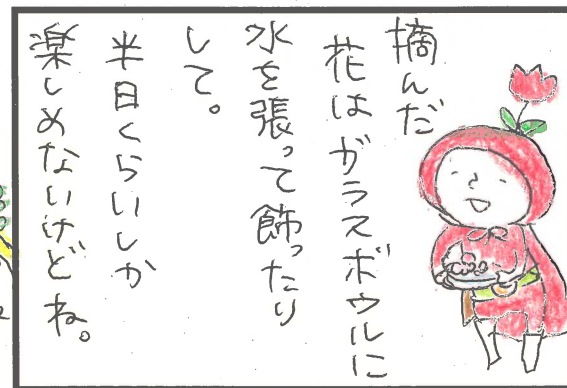 摘んだ
花はガラスボウルに
水を張って飾ったり
して。
半日くらいしか
楽しめないけどね。